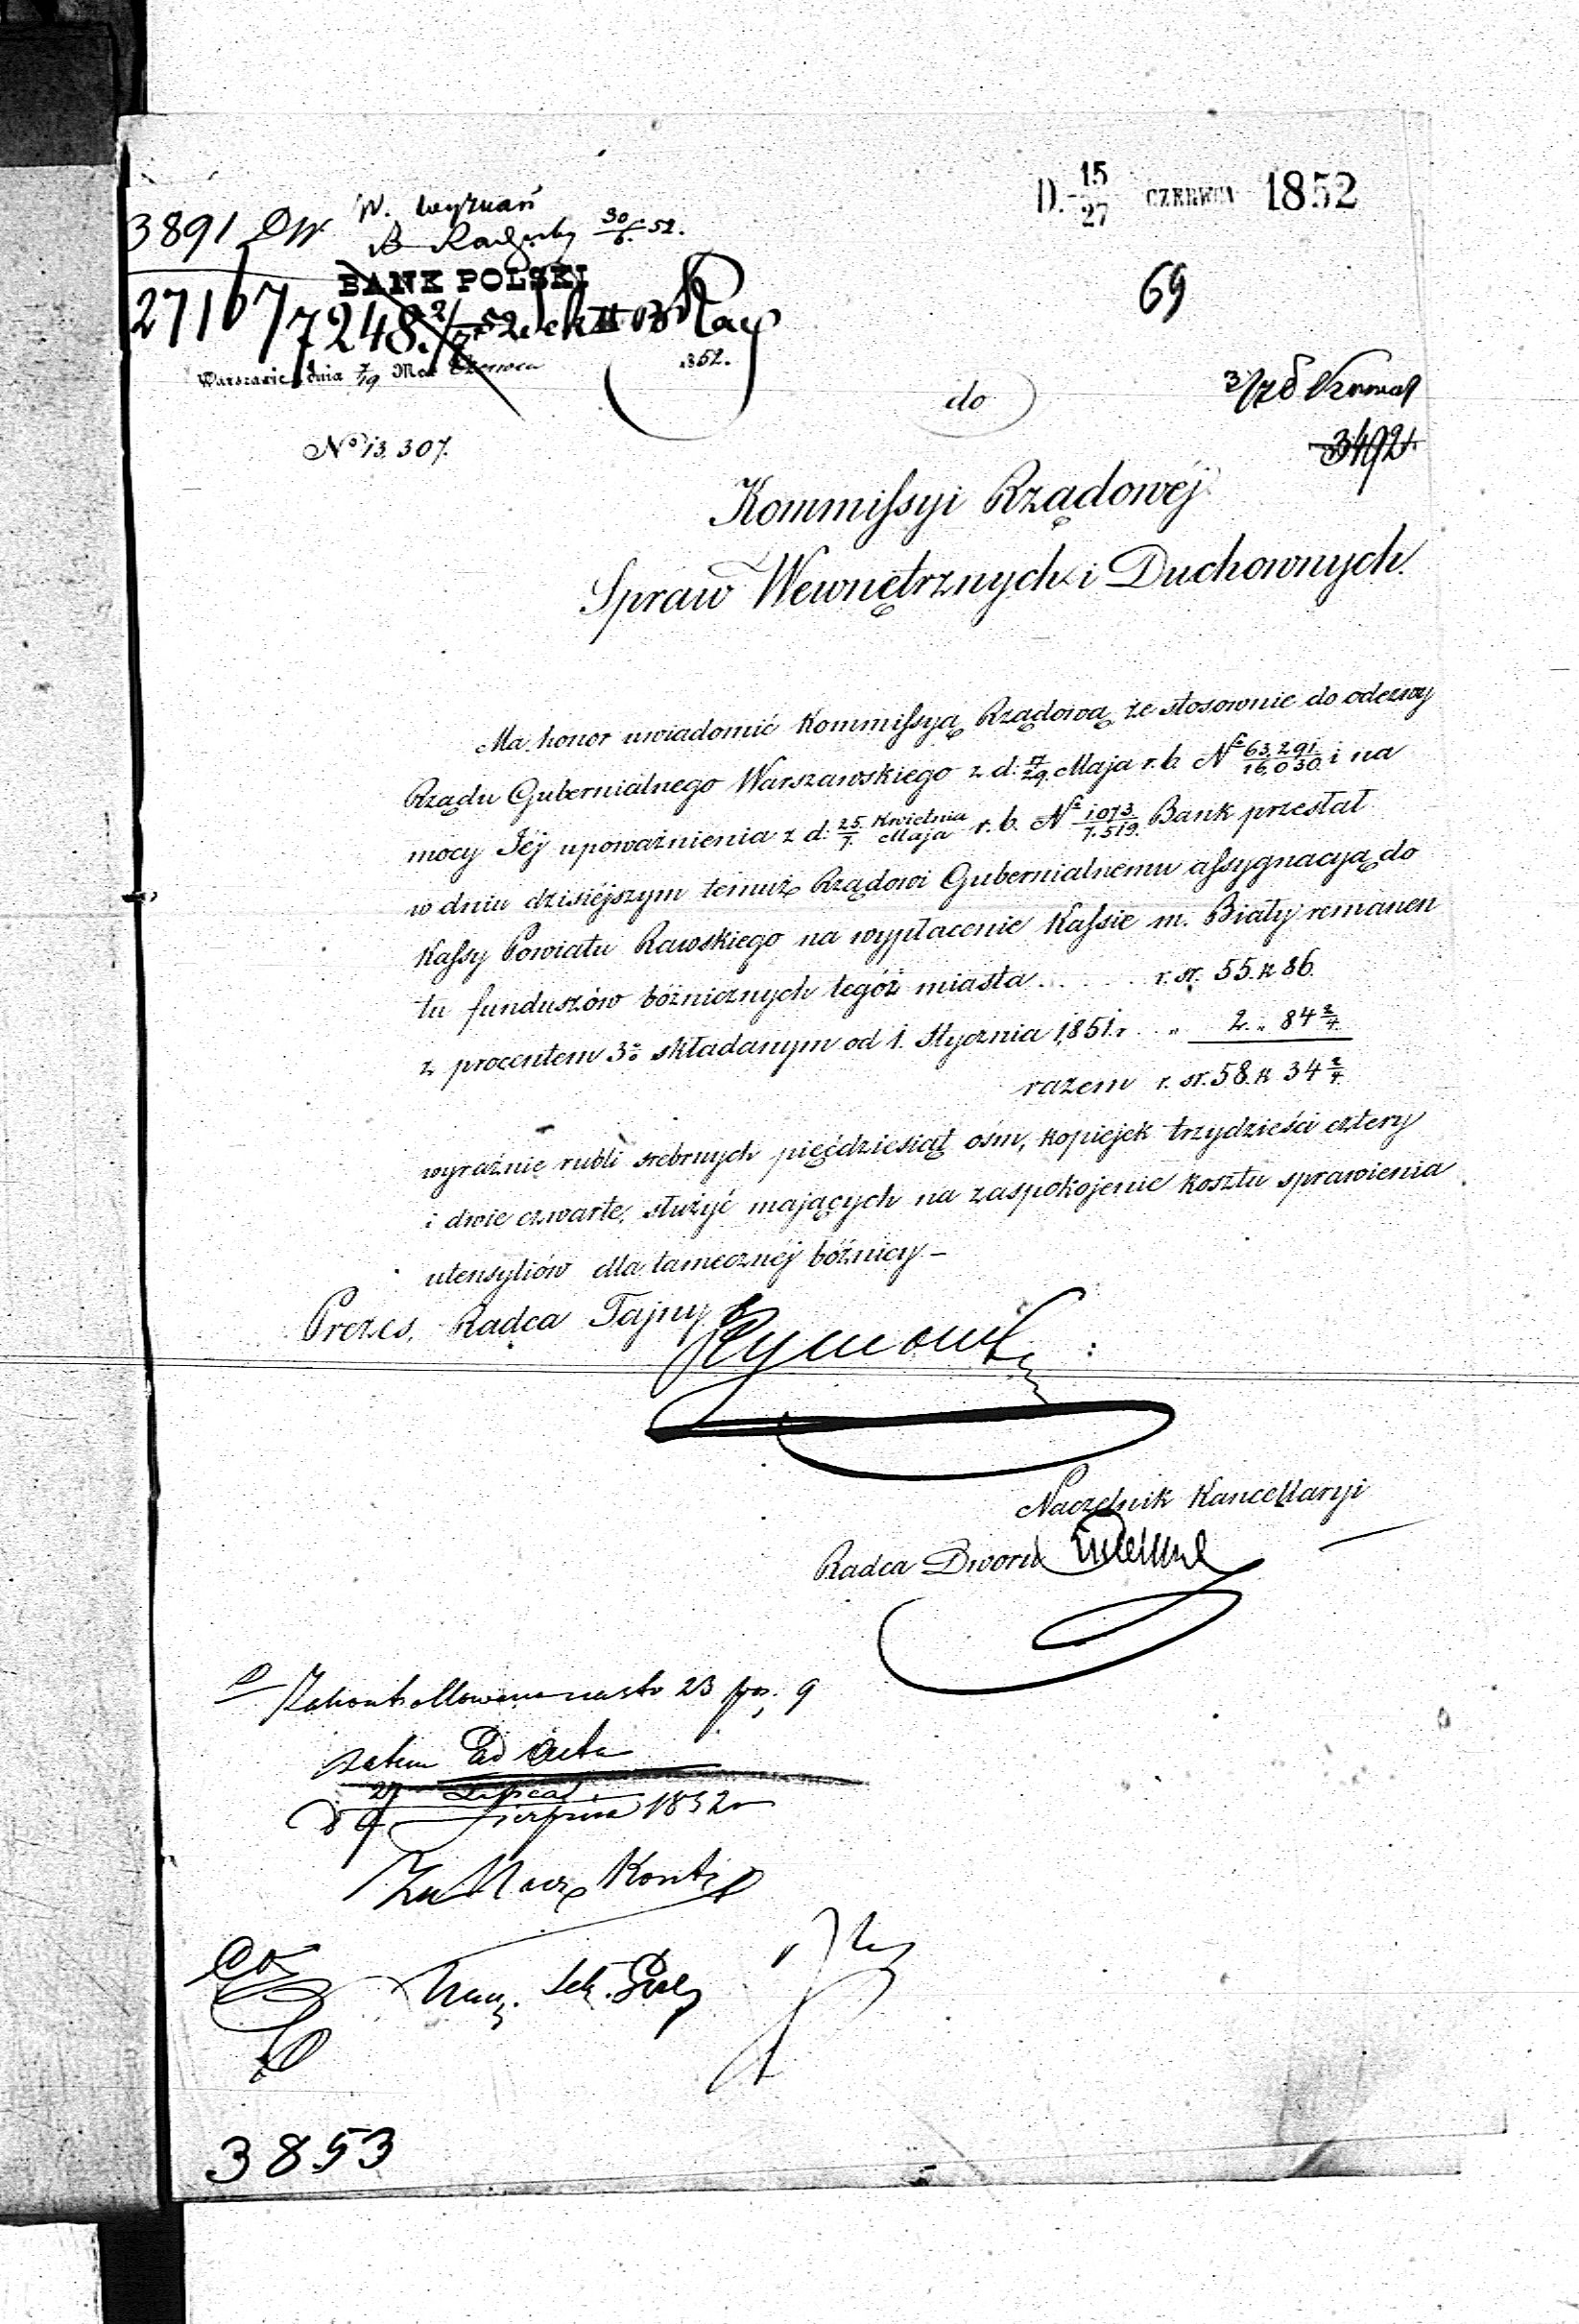 D. 15/27 CZERWCA 1852
W. Wyznań
3891 DW 30/6 52.
BANK POLSKI
69
27167
7248.
Warszawie dnia 7/19 Mca Czerwca 1852.
do
No 13,307.
3492
Kommissyi Rządowéj
Spraw Wewnętrznych i Duchownych.
Ma honor uwiadomić Kommissyą Rządową, że stosownie do odezwy
Rządu Gubernialnego Warszawskiego z d: 17/29 Maja r. b. No 63,291/16,030 i na
mocy Jéj upoważnienia z d: 25 Kwietnia/7. Maja r. b. No 1073/7.519. Bank przesłał
w dniu dzisiéjszym temuż Rządowi Gubernialnemu assygnacyą do
Kassy Powiatu Rawskiego na wypłacenie Kassie m. Biały remanen
tu funduszów bóżniczych tegóż miasta . . . . . r. sr. 55. k 86.
z procentem 3% składanym od 1. Stycznia 1851. r. . „ 2. „ 84 2/4
razem r. sr. 58. k 34 2/4
wyraźnie rubli srebrnych pięćdziesiąt ośm, kopiejek trzydzieści cztery
i dwie czwarte, służyć mających na zaspokojenie kosztu sprawienia
utensyliów dla tamecznéj bóżnicy –
Prezes, Radca Tajny
Naczelnik Kancellaryi
Radca Dworu
23 poz. 9
zatem Ad Acta
27 Lipca
d 8 Sierpnia 1852 r
Za Nacz Kontr
3853